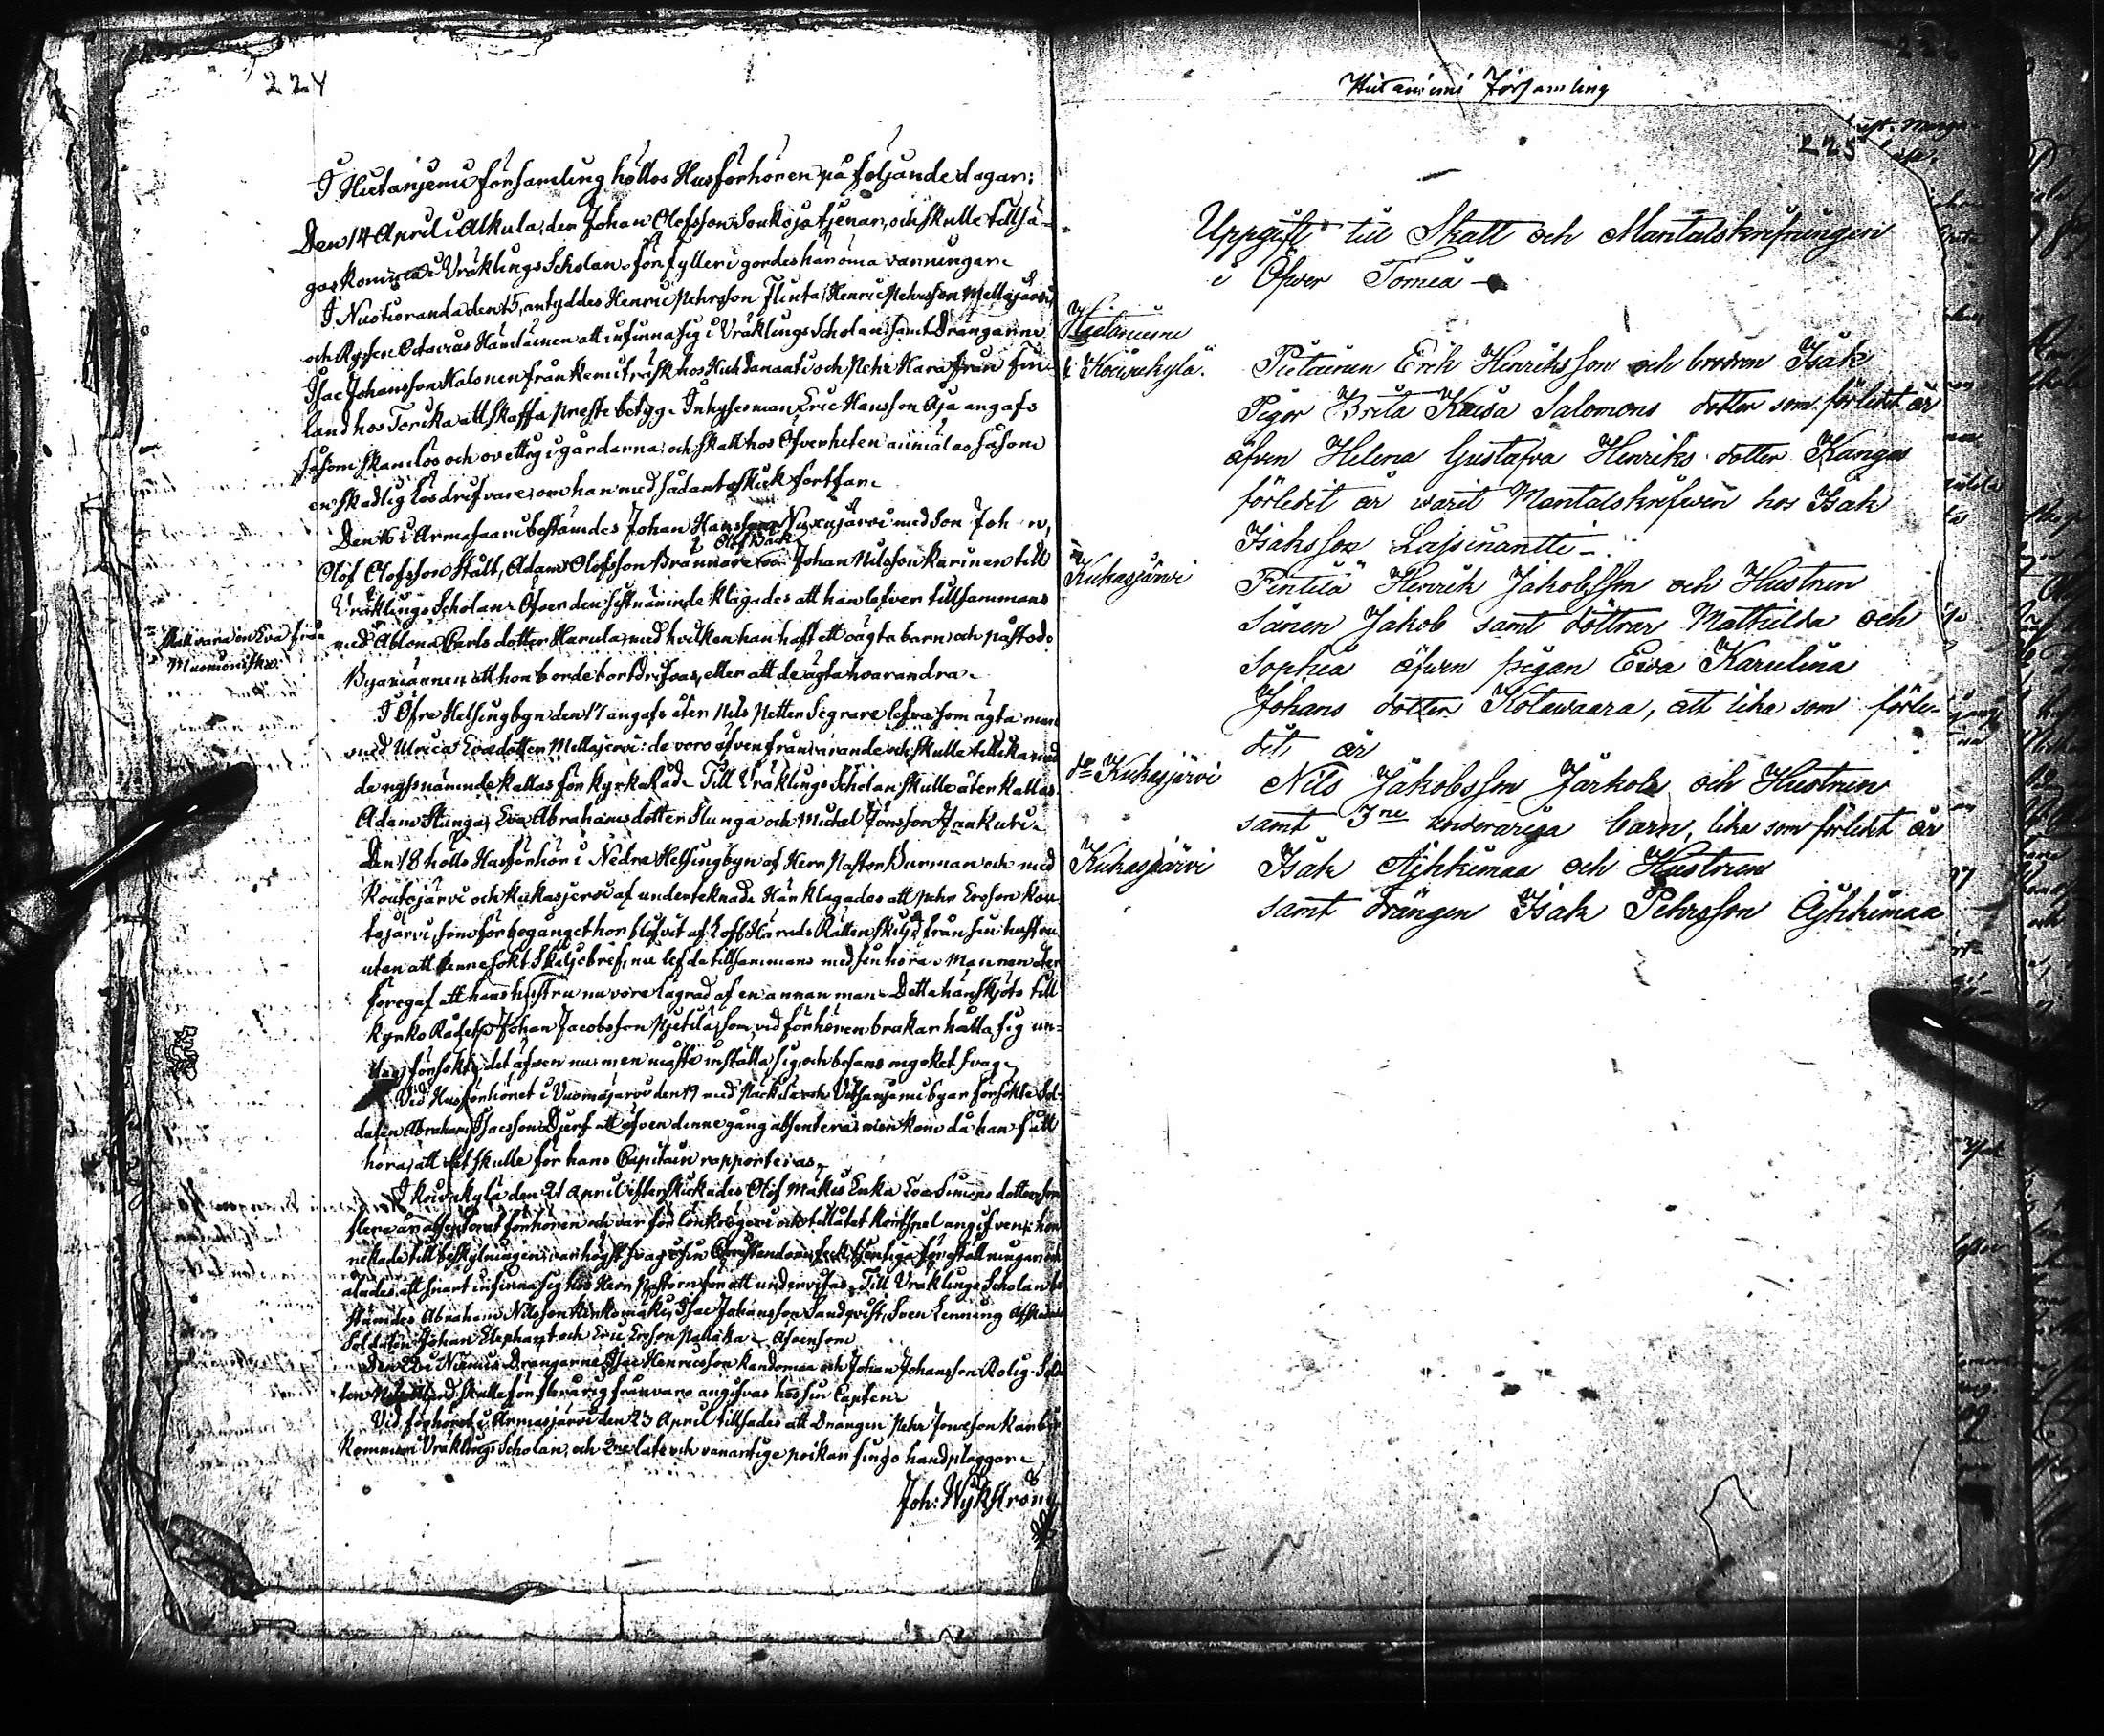 224
I Hietanjemi församling höltos Husförhören på följande dagar:
Den 14 April i Alkula, der Johan Olofsson Soukoja tjenar, och skulle tillsä-
gas komma i Vräklings Scholan, för fylleri gordes här öma varningar.
I Nuotioranda den 15, antyddes Henric Pehrsson Flinta, Henric Pehrsson Mellajärvi
och Ryssen Octavius Hämäläinen att infinna sig i Vräklings Scholan, samt Drängarne
Isac Johansson Halonen från Kemiträsk hos Huhdananti och Pehr Hara från Fin-
land hos Torikka att skaffa prestebetyg. Inhysesman Eric Hansson Oja angafs
såsom skamlös och ovettig i gårdarna, och skall hos Öfverheten anmälas såsom
en skadlig lösdrifvare, om han med sådant skick fortfar.
Den 16 i Armasaari bestämdes Johan Hansson Nuxujärvi med Son Joh n,
Olof Bäck
Olof Olofsson Stålt, Adam Olofsson Brännare Johan Nilsson Karinen till
Vräklings Scholan. Öfver den sistnämnde klagades att han lefver tillsammans
med Ablona Carls dotter Harula, med hvilken han haft ett oägta barn och påstodo
Byamännen att hon borde bortdrifvas, eller att de ägta hvarandra.
Skall vara en Eva från
Muonioniska.
I Öfre Helsingbyn den 17 angafs åter Nils Petter Segrare lefva som ägta man
med Ulrica Evadotter Mellajervi: de voro äfven frånvarande och skulle tillika med
de nyssnämnde kallas för kyrkoråd. Till Vräklings Scholan skulle åter kallas
Adam Stunga, Eva Abrahamsdotter Stunga och Michel Jönsson Jankuri.
Den 18 hölls Husförhör i Nedre Helsingbyn af Herr Pastor Durman och med
Koutojärvi och Kukasjervi af undertecknad. Här klagades att Pehr Ersson Kou-
tojärvi, som för begånget hor blifvit af Lofl. Härads Rätten skiljd från sin hustru
utan att denne sökt Skiljobref, nu lefde tillsammans med sin hora. Mannen åter
föregaf att hans hustru nu vore lägrad af en annan man. Detta hänskjöts till
kyrko Rådet. Johan Jacobsson Pjetilä, som vid förhören brukar hålla sig un-
dan, försökte det äfven nu: men måste inställa sig, och befans mycket svag.
Vid Husförhöret i Vuomajärvi den 19 med Päckilä och Vitsanjemi byar försökte Sol-
daten Abraham Isacsson Djerf att äfven denne gång absentera; men kom då han fått
höra, att det skulle för hans Capitain rapporteras.
I Koivukylä den 21 April efterskickades Olof Mäkis Enka Eva Simons dotter, som
flere år absenterat förhören och var för lönkrögeri och tillåtet kortspel angifven: hon
nekade till beskyllningen, var högst svag i sin Christendom, fick tjenliga föreställningar och
ålades att snart infinna sig hos Herr Pastorn för att undervisas. Till Vräklings Scholan be-
stämdes Abraham Nilsson Kenkomäki, Isac Johansson Sandqvist, Sven Lenning Afskedade
Soldaten Johan Elephant och Eric Ersson Pallaka. Äfvensom
Den 22 i Niemis Drängarne Isac Henricsson Kandomaa och Johan Johansson Rolig. Solda-
ten skulle för flerårig frånvaro angifvas hos sin Capten.
Vid förhöret i Armasjärvi den 23 April tillsades att Drängen Pehr Jonasson
kommer i Vräklings Scholan, och 2ne late och vanartige poikar fingo handplaggor.
Joh: Wykström
Hietaniemi Församling
225
Uppgift till Skatt och Mantalskrifningen
i Öfver Torneå
Hietaniemi
i Koivukylä.
Pietainen Erik Henriksson och brodren Isak
Pigor Brita Kaisa Salomons dotter som förledit år
äfven Helena Gustafva Henriks dotter Kangas
förledit år warit Mantalskrifwen hos Isak
Isaksson Lassinantti
Kukasjärvi
Pentilä Henrik Jakobsson och Hustrun
Sånen Jakob samt döttrar Mathilda och
Sophia äfwen pigan Ewa Karulina
Johans dotter Kolawaara, att lika som förle-
det år
do Kukasjärvi
Nils Jakobsson Jarkola och Hustrun
samt 3ne underåriga barn, lika som förledit år
Kukasjärvi
Isak Ajhkimaa och Hustrun
samt drängen Isak Pehrsson Ajhkimaa